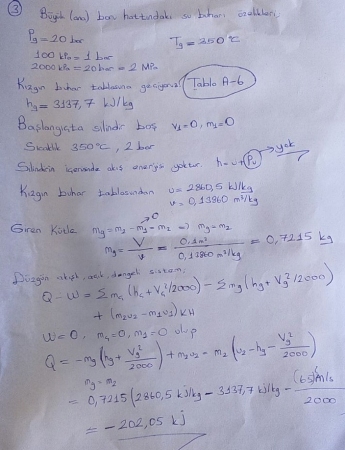 ③ Büyük (ana) boru hattındaki su buharı özellikleri,
Pg = 20 bar   Tg = 350°C
100 kPa = 1 bar
2000 kPa = 20 bar = 2 MPa
Kızgın buhar tablosuna geçiyoruz Tablo A-6
hg = 3137,7 kJ/kg
Başlangıçta silindir boş v₁=0, m₁=0
Sıcaklık 350°C, 2 bar
Silindirin içerisinde akış enerjisi yoktur. h = u + Pv → yok
Kızgın buhar tablosundan u = 2860,5 kJ/kg
v = 0,13860 m³/kg
Giren Kütle mg = m₂ - m₁ → 0 ⇒ mg = m₂
mg = V/v = 0,1 m³ / 0,13860 m³/kg = 0,7215 kg
Düzgün akışlı açık dengeli sistem;
Q - W = Σmç (hç + Vç²/2000) - Σmg (hg + Vg²/2000)
+ (m₂u₂ - m₁u₁)KH
W=0, mç=0, m₁=0 olup
Q = -mg (hg + Vg²/2000) + m₂u₂ = m₂ (u₂ - hg - Vg²/2000)
mg = m₂
= 0,7215 (2860,5 kJ/kg - 3137,7 kJ/kg - (65)² m/s / 2000
= -202,05 kJ